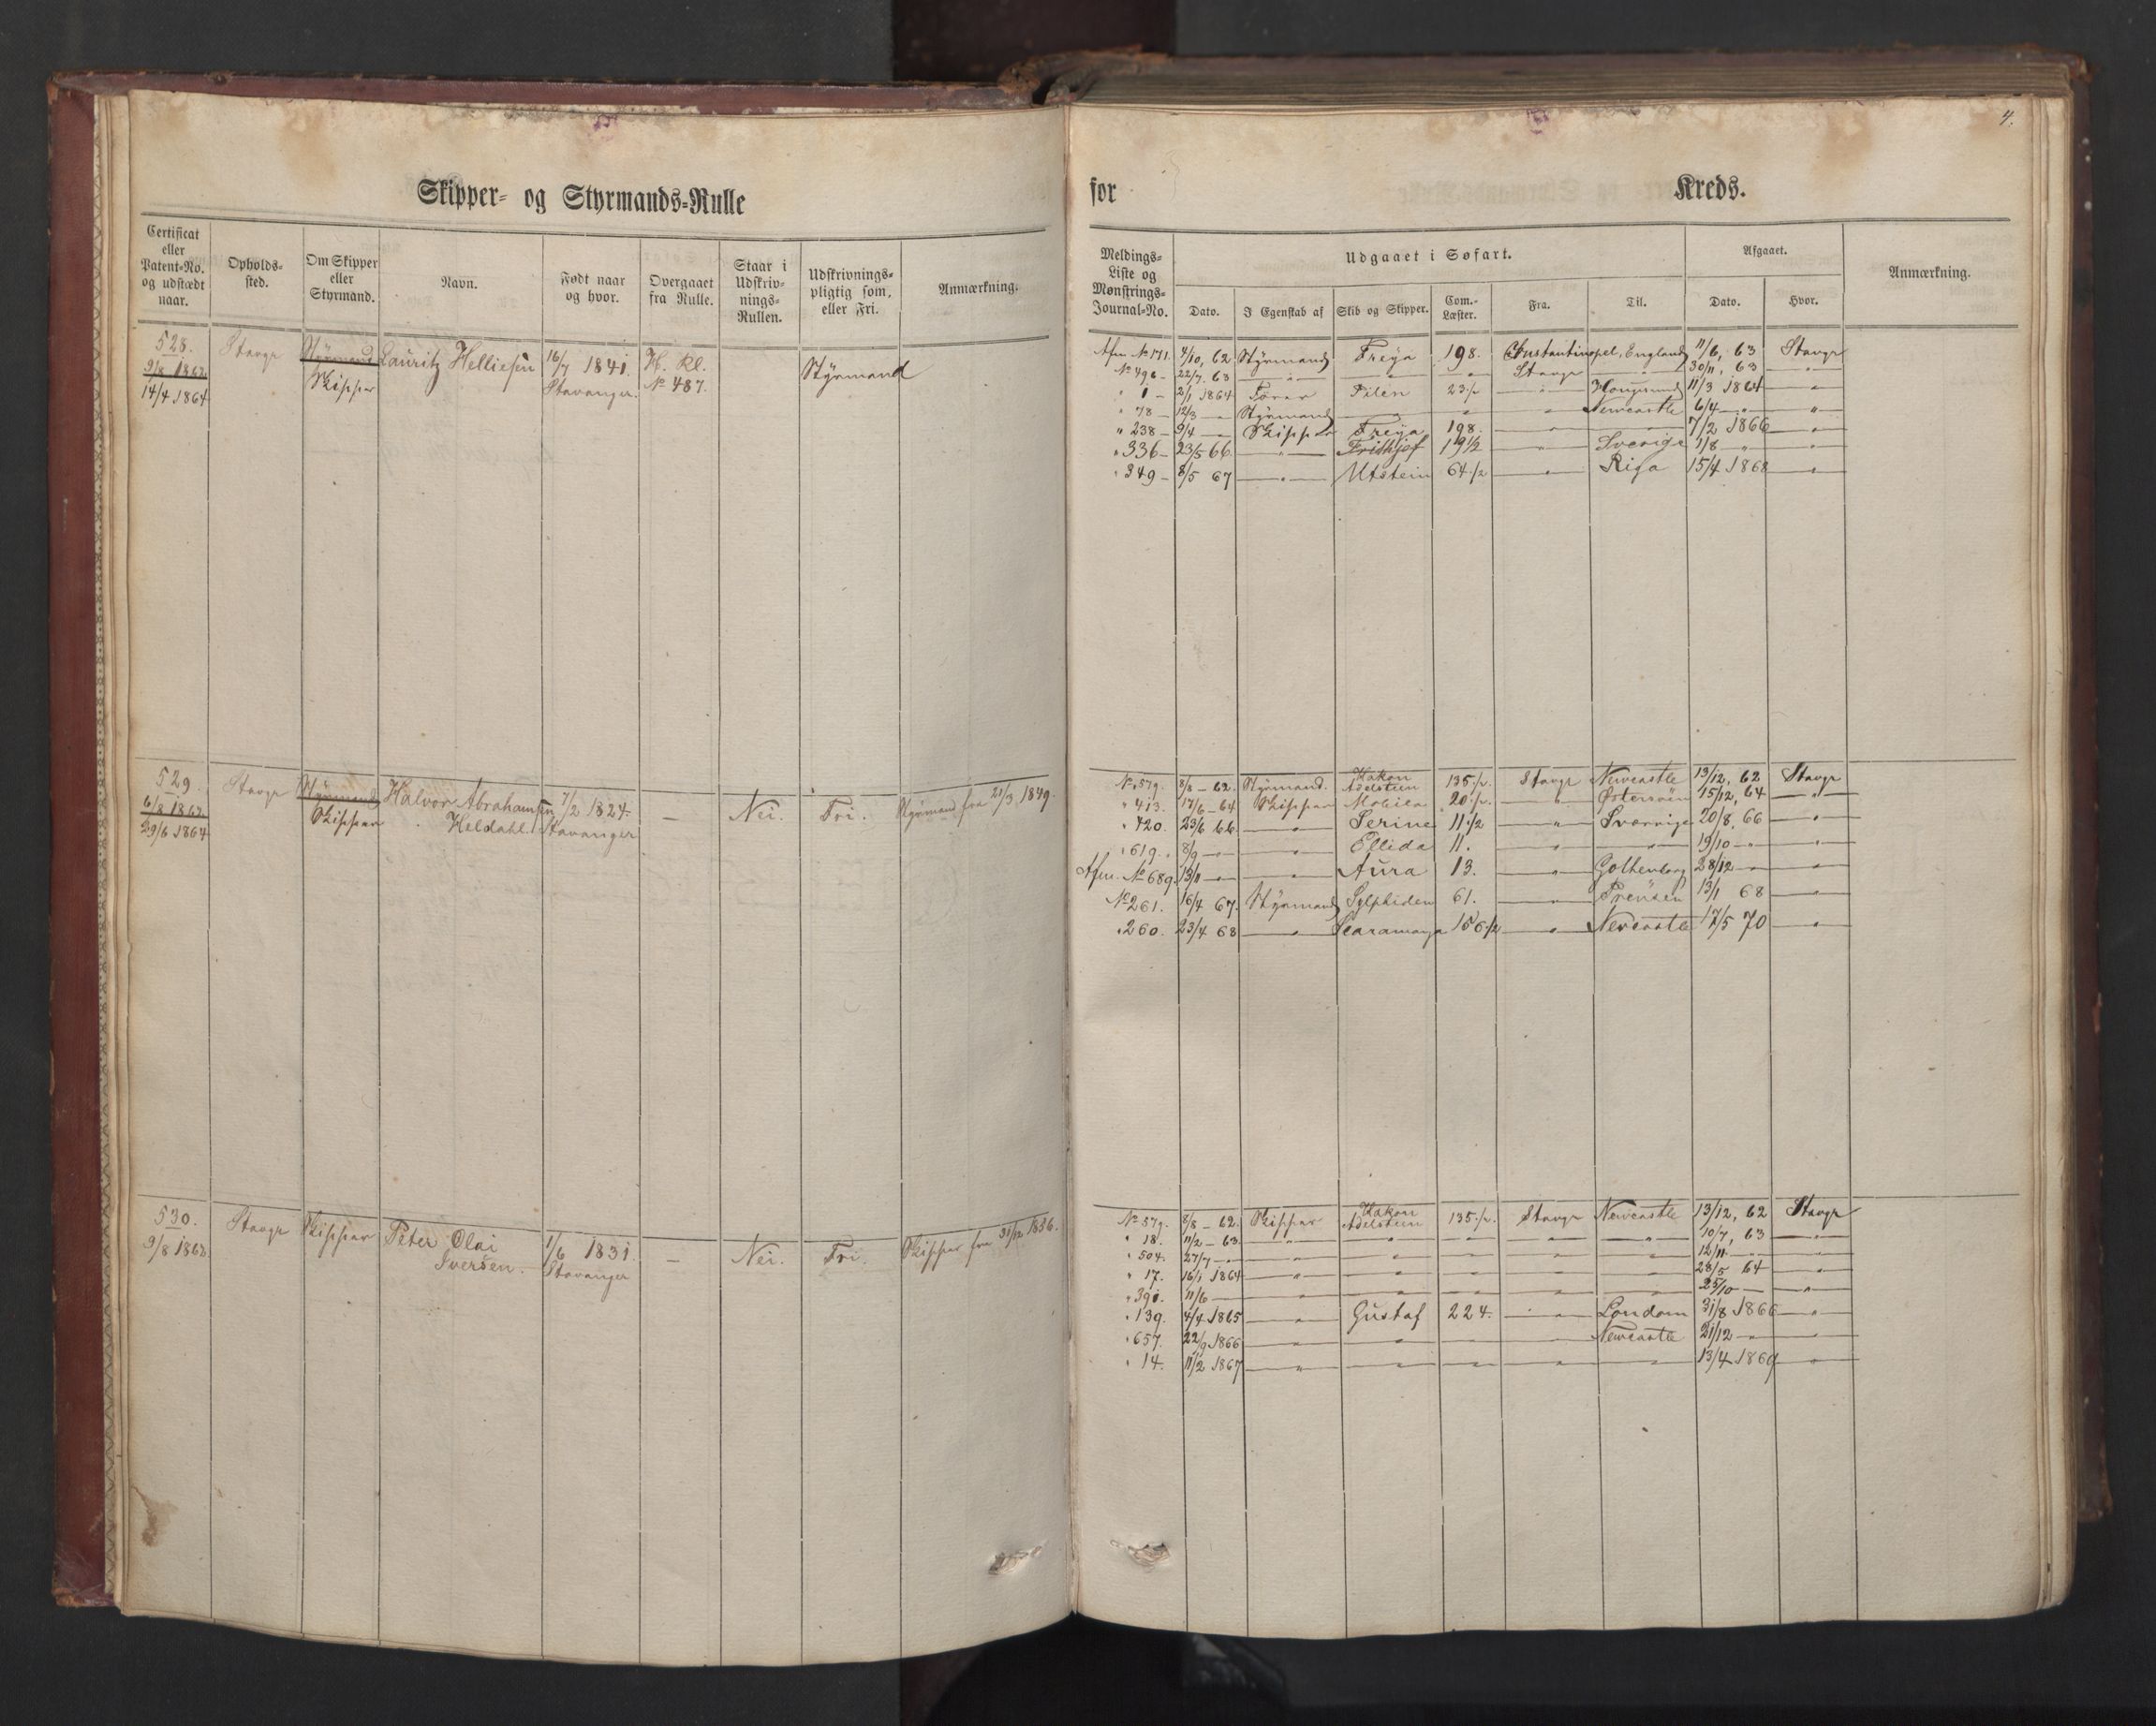 4.
Skipper- og Styrmands-Rulle
for Kreds.
Certificat eller Patent-No. og udstædt naar.
Opholds-sted.
Om Skipper eller Styrmand.
Navn.
Født naar og hvor.
Overgaaet fra Rulle.
Staar i Udskriv-nings-Rullen.
Udskrivnings-pligtig som, eller Fri.
Anmærkning.
Meldings-Liste og Mønstrings-Journal-No.
Udgaaet i Søfart.
Dato.
I Egenskab af
Skib og Skipper.
Com.-Læster.
Fra.
Til.
Afgaaet.
Dato.
Hvor.
Anmærkning.
528. Stavgr Styrmand Lauritz Helliesen 16/7 1841. H. Kl. Styrmand
9/8 1862 Skipper Stavanger. No 487.
14/4 1864
Afm No 171. 4/10, 62 Styrmand Freya 198. Constantinopel, England 11/6, 63 Stavgr
No 496 - 22/7 63 — " — " " Stavgr — " — 30/11, 63 — " —
" 1 - 2/1 1864 Fører Filen 23 1/2 — " — Haugesund 11/3 1864 — " —
" 78 - 12/3 — " Styrmand — " — " " Newcastle 6/4 — " — "
" 238 - 9/4 — Skipper Freya 198. — " — 7/2 1866 — " —
" 336 - 23/5 66. — " — Frithjof 19 1/2 — " — Sverige 1/8 — " — " —
" 349 - 8/5 67 — " — Utstein 64 1/2 — " — Riga 15/4 1868 — " —
529. Stavgr Styrmand Halvor Abrahamsen 7/2 1824. — Nei. Fri. Styrmand fra 21/3 1849.
6/8 1862. Skipper Heldahl. Stavanger
29/6 1864
No 579. 8/8 - 62. Styrmand. Hakon Adelsteen 135 1/2. Stavgr Newcastle 13/12, 62 Stavgr
" 413. 17/6 - 64 Skipper Mobila 20 1/2. — " — Østersøen 15/12, 64 — " —
" 420. 23/6 66. — " — Serine 11 1/2 — " — Sverrige 20/8, 66 — " —
" 619. " 8/9 — " — " — Ellida 11. — " — " — 19/10 — " — " —
Afm. No 689. 13/11 — " — " — Aura 13. — " — Gothenborg 28/12 — " — " —
No 261. 16/4 67. Styrmand Sylphiden 61. — " — Preusen 13/1 68 — " —
" 260. 23/4 68 — " — Scaramanga 156 1/2 — " — Newcastle 17/5 70 — " —
530. Stavgr Skipper Peter Olai 1/6 1831. — Nei. Fri. Skipper fra 31/12 1856.
9/8 1862. Iversen. Stavanger
No 579. 8/8 - 62. Skipper Hakon Adelsteen 135 1/2. Stavgr Newcastle 13/12, 62 Stavgr
" 18. 11/2 - 63. — " — " — " — " — " — 10/7, 63 — " —
" 504. 27/7 — " — " — " — " — " — " — 12/11 — " — " —
" 17. 16/1 1864 — " — " — " — " — " — 28/5 64 — " —
" 391. 11/6 — " — " — " — " — " — 25/10 — " — " —
" 139. 4/4 1865 — " — Gustaf 224. — " — London 31/8 1866 — " —
" 657. 22/9 1866 — " — " — " — " — Newcastle 21/12 — " — " —
" 14. 11/2 1867 — " — " — " — " — " — 13/4 1869 — " —